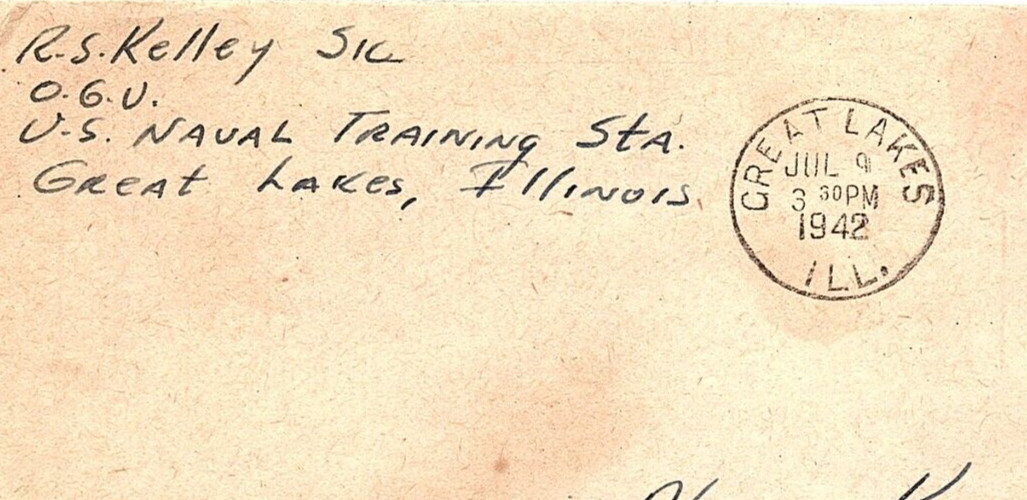 R.S. Kelley S1c
O.G.U.
U.S. NAVAL TRAINING STA.
Great Lakes, Illinois
GREAT LAKES
JUL 9
3 30 PM
1942
ILL.